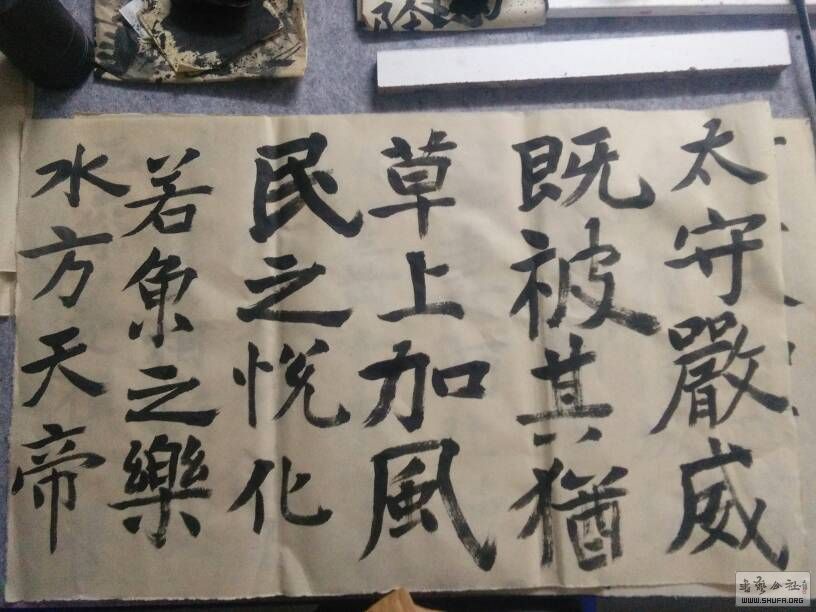 太守嚴威
既被其猶
草上加風
民之悅化
若魚之樂
水方天帝
書藝公社
WWW.SHUFA.ORG